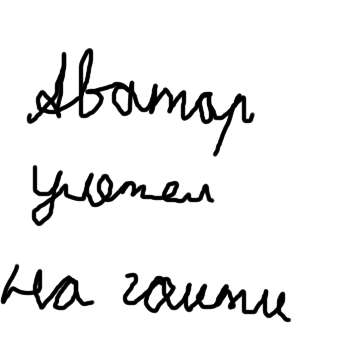 Аватар
улетел
на гаити